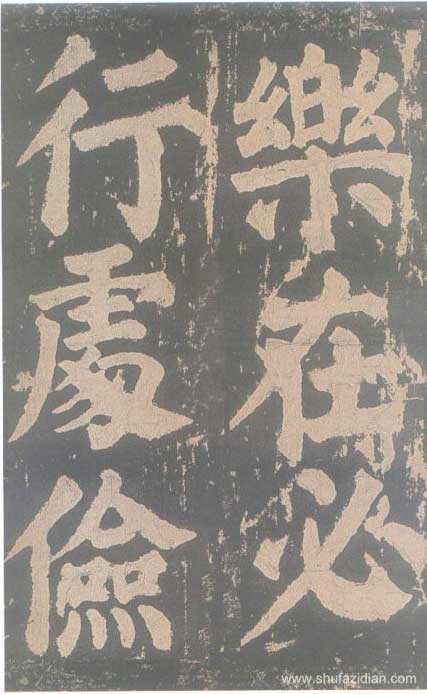 樂在必
行處儉
www.shufazidian.com